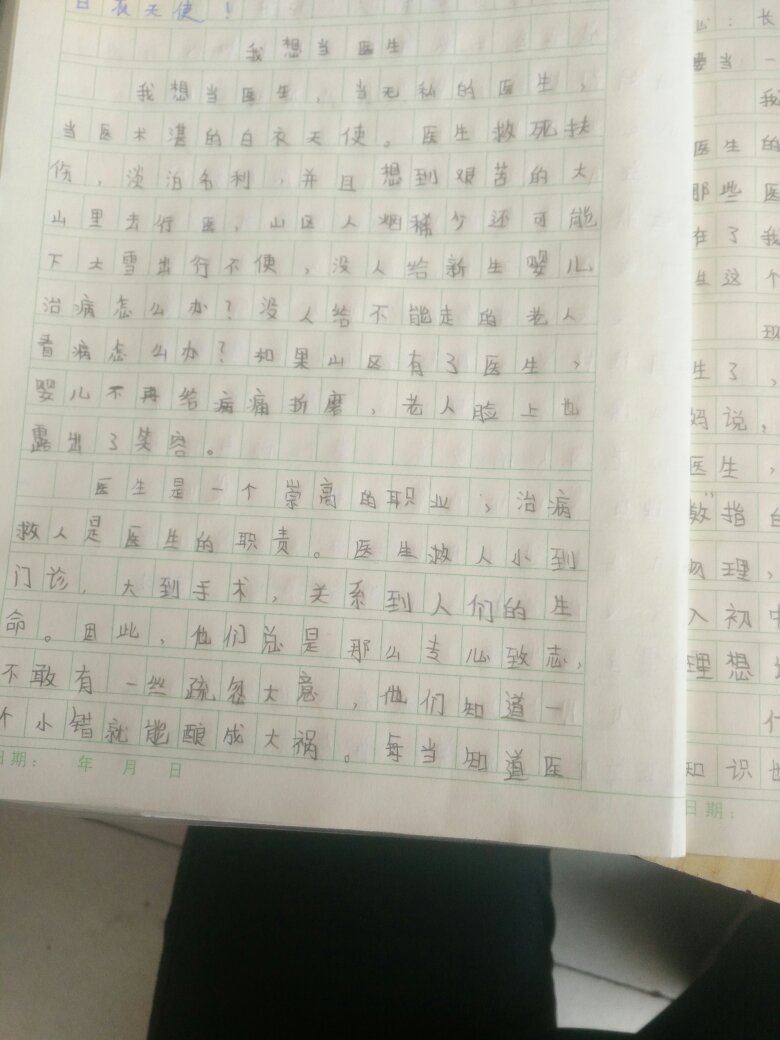 白衣天使！
我想当医生
我想当医生，当无私的医生，
当医术湛的白衣天使。医生救死扶
伤，淡泊名利，并且想到艰苦的大
山里去行医，山区人烟稀少还可能
下大雪出行不便，没人给新生婴儿
治病怎么办？没人给不能走的老人
看病怎么办？如果山区有了医生，
婴儿不再给病痛折磨，老人脸上也
露出了笑容。
医生是一个崇高的职业，治病
救人是医生的职责。医生救人小到
门诊，大到手术，关系到人们的生
命。因此，他们总是那么专心致志，
不敢有一丝疏忽大意，他们知道一
个小错就能酿成大祸。每当知道医
日期： 年 月 日
心：长
要当一
我
医生的
那些医
在了我
生这个
现
生了，
妈说，
医生，
数"指白
物理，
入初中
理想
知识也
日期：